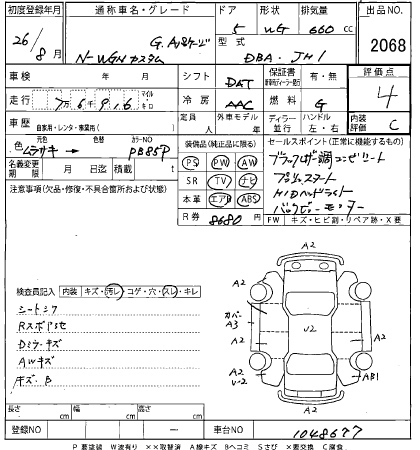 初度登録年月 通称車名・グレード ドア 形状 排気量 出品NO
26/8月 N-WGNカスタム G. 5 WG 660cc 2068
型式 DBA-JH1
車検 年 月 シフト DAT 保証書 有・無 評価点 4
走行 7万6916 マイル キロ 冷房 AAC 燃料 G 内装評価 C
車歴 自家用・レンタ・事業用( ) 定員 人 外車モデル 年 ディーラー 並行 ハンドル 左・右
色 元色 ムラサキ → カラーNO PB85P 装備品(純正品に限る) セールスポイント(正常に機能するもの)
名義変更期限 月 日迄 積載 t PS PW AW
注意事項(欠品・修復・不具合箇所および状態) SR TV ナビ プッシュスタート
本革 エアB ABS HIDヘッドライト
R券 8680円 バックビューモニター
FW キズ・ヒビ割・リペア跡・X要
検査員記入 内装 キズ・汚レ・コゲ・穴・スレ・キレ
シートシワ
Rスポアラセ
Dミラーキズ
AWキズ
キズ・B
A2
A2 A2
カバー
A3
V2
A2 A2
A2
V-2
AB1
A2
長さ cm 幅 cm 高さ cm
登録NO — 車台NO 1048677
P 要塗装 W波有り ××取替済 A線キズ Bヘコミ Sさび ×要交換 C腐食